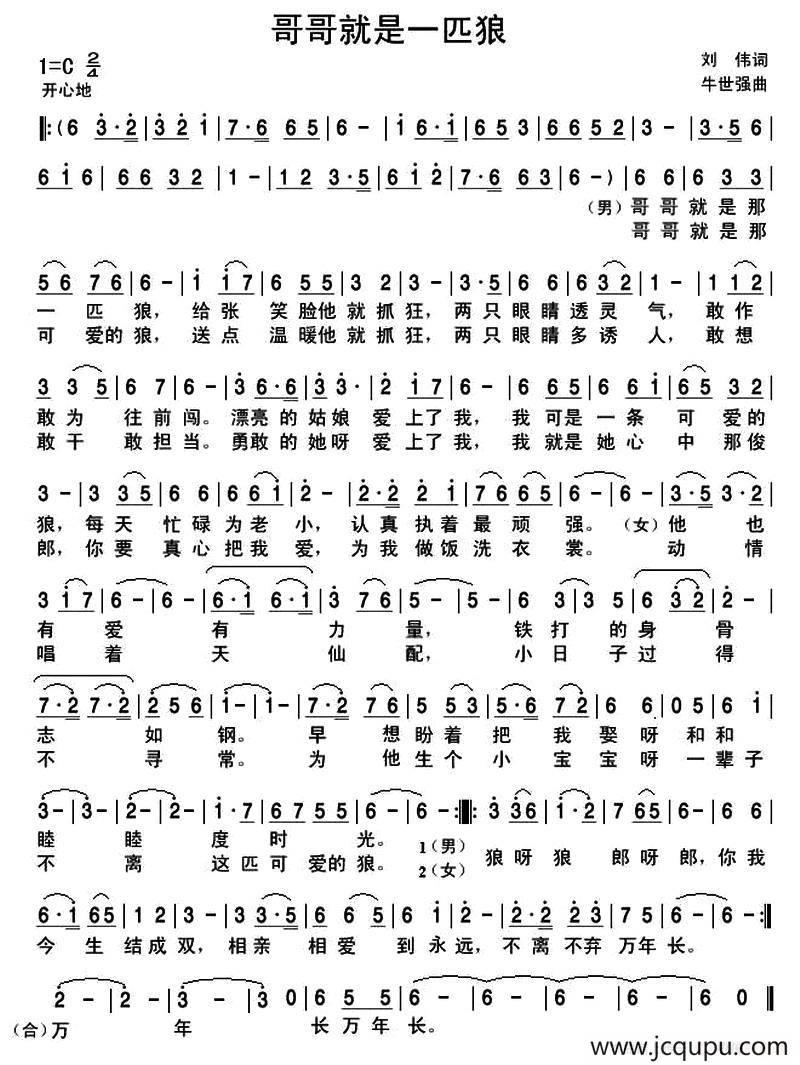 哥哥就是一匹狼
1=C 2/4
刘 伟词
开心地
牛世强曲
‖:(6 3·2|3 2 1|7·6 6 5|6 -|1 6·1|6 5 3 5|6 6 5 2|3 -|3·5 6|
6 1 6|6 6 3 2|1 -|1 2 3·5|6 1 2|7·6 6 3|6 -)|6 6|6 3 3|
(男)哥哥就是那
哥哥就是那
5 6 7 6|6 -|1 1 7|6 3 2|3 -|3·5 6|6 3 2|1 -|1 1 2|
一匹狼,给张笑脸他就抓狂,两只眼睛透灵气,敢作
可爱的狼,送点温暖他就抓狂,两只眼睛多诱人,敢想
3 3 5|6 7|6 -|3 6·6|3 3·|2 1 7|6 -|6 5 6|6 6 1|6 5 3 2|
敢为往前闯。漂亮的姑娘爱上了我,我可是一条可爱的
敢干敢担当。勇敢的她呀爱上了我,我就是她心中那俊
3 -|3 3 5|6 6|6 6 1|2 -|2·2 2 1|7 6 6 5|6 -|6 -|3·5 3·2|
狼,每天忙碌为老小,认真执着最顽强。(女)他也
郎,你要真心把我爱,为我做饭洗衣裳。动情
3 1 7|6 -|6 -|6·1 6·1|3 7 6|5 -|5 -|6 3|3 5|6 3 2|
有爱有力量,铁打的身骨
唱着天仙配,小日子过得
7·2 7·2|2 5 6|1 -|1 -|7 7 6|5 5 3|5·6 7 2|6 6|0 5|6 1|
志如钢。早想盼着把我娶呀和和
不寻常。为他生个小宝宝呀一辈子
3 -|3 -|2 -|2 -|1·7|6 7 5 5|6 -|6 -:‖:3 3 6|1·2|7 6 5|6 6|
睦睦度时光。1(男)狼呀狼郎呀郎,你我
不离这匹可爱的狼。2(女)
6·1 6 5|1 2|3 -|3 3·5|6 6|6 1|2 -|2·2 2 3|7 5|6 -|6 -:‖
今生结成双,相亲相爱到永远,不离不弃万年长。
2 -|2 -|3 -|3 0|6 5 5|6 -|6 -|6 -|6 0‖
(合)万年长万年长。
www.jcqupu.com